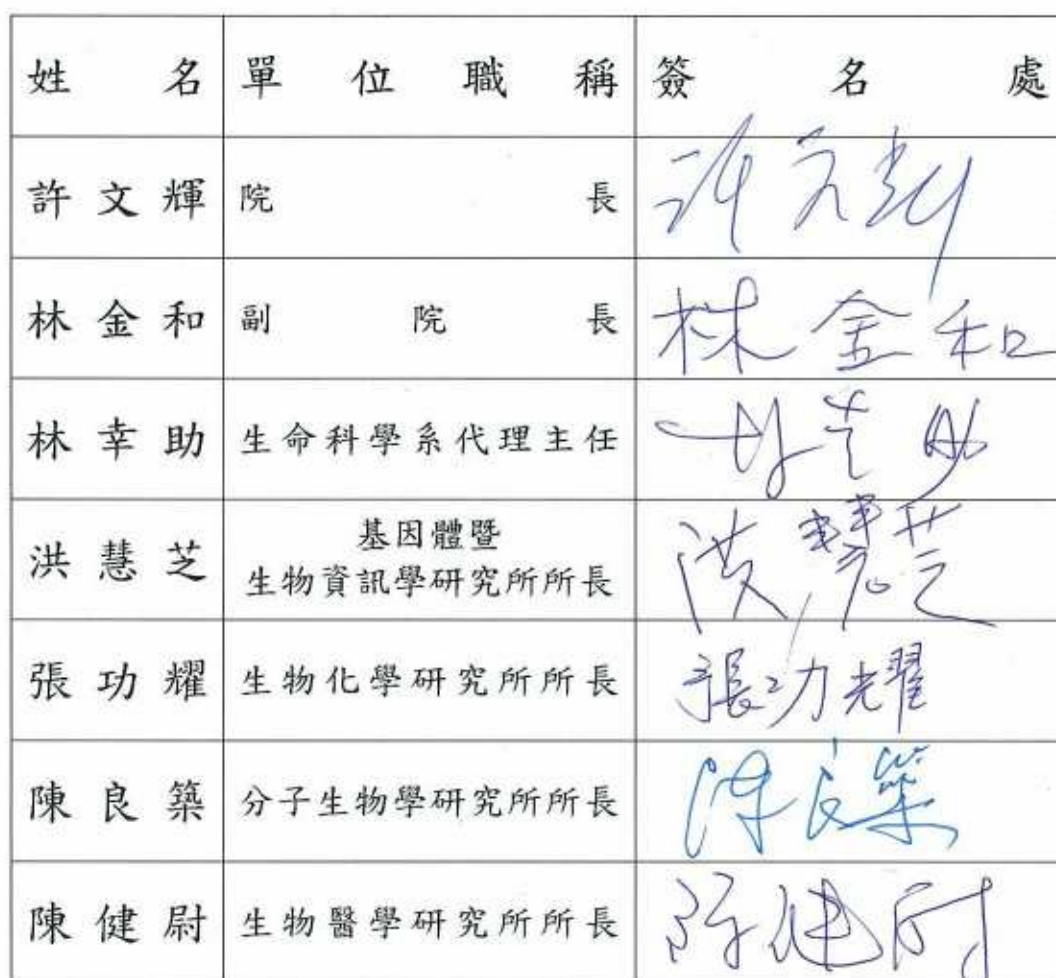 姓名 單位職稱 簽名處
許文輝 院長 許文輝
林金和 副院長 林金和
林幸助 生命科學系代理主任 林幸助
洪慧芝 基因體暨
生物資訊學研究所所長 洪慧芝
張功耀 生物化學研究所所長 張功耀
陳良築 分子生物學研究所所長 陳良築
陳健尉 生物醫學研究所所長 陳健尉